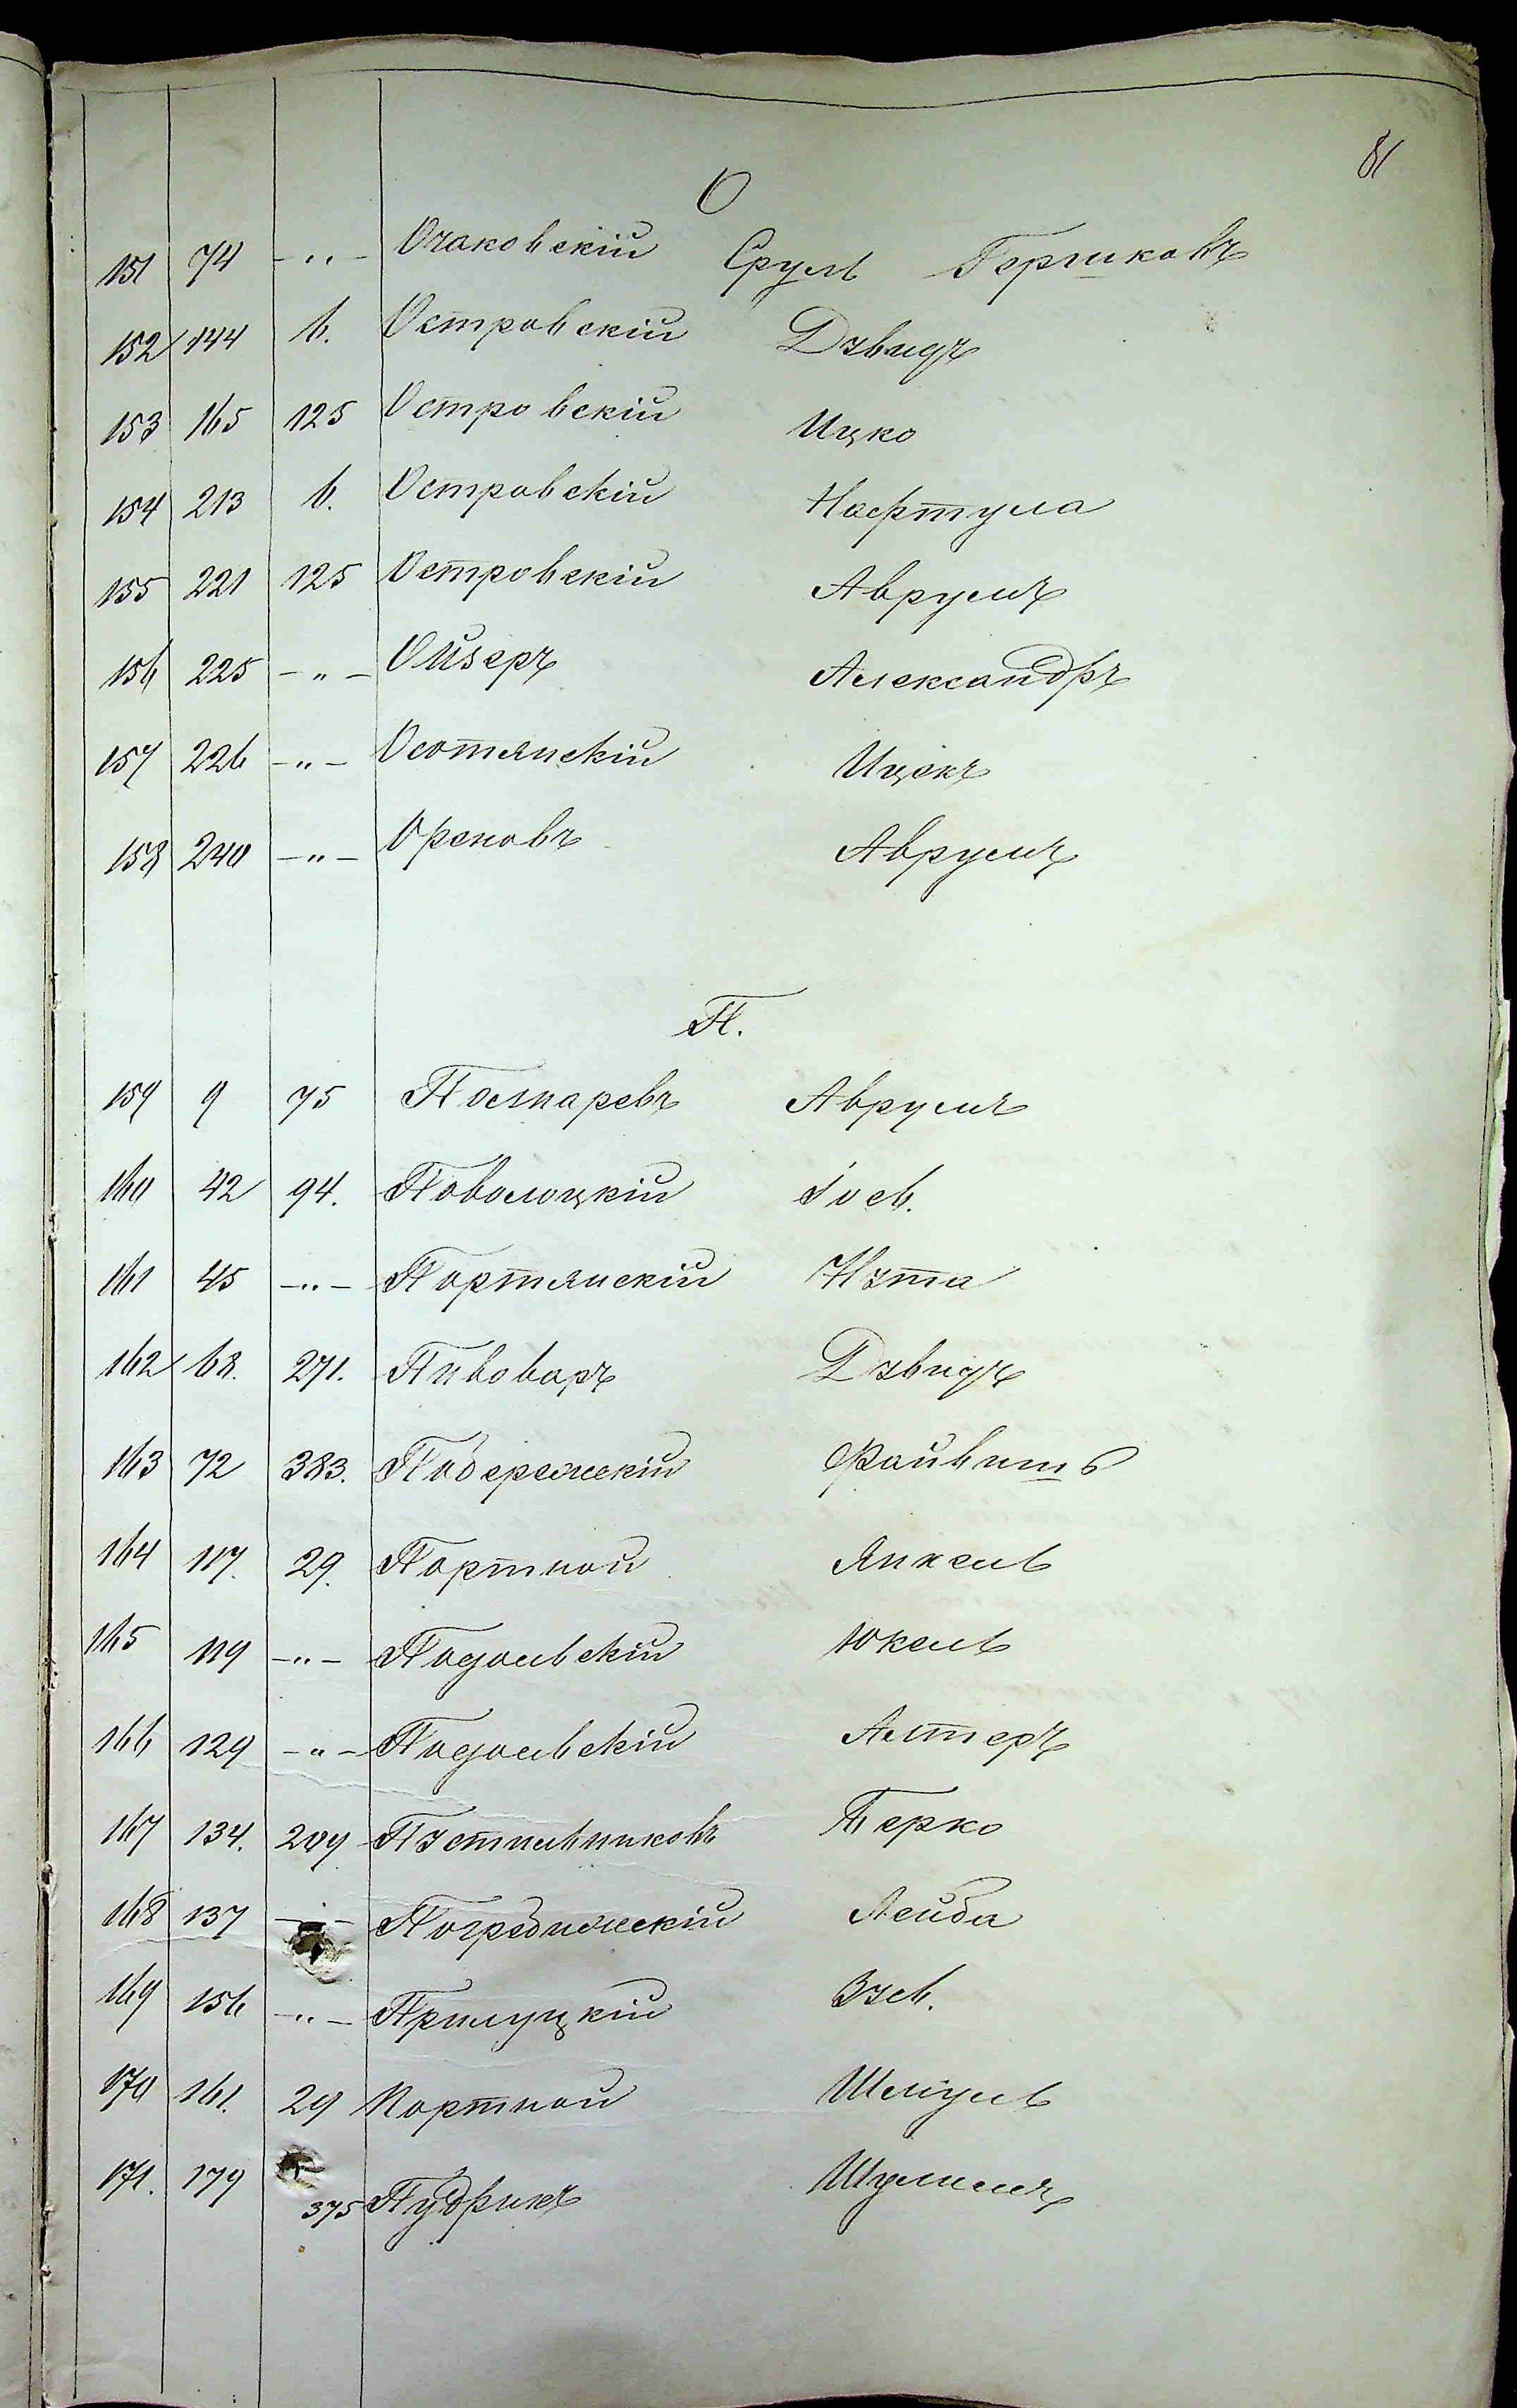 81
О
151 74 -"- Очаковскій Сруль Гершковъ
152 144 6. Островскій Давидъ
153 165 125 Островскій Ицко
154 213 6. Островскій Нафтула
155 221 125 Островскій Аврумъ
156 225 -"- Ойзеръ Александръ
157 226 -"- Осотянскій Ицекъ
158 240 -"- Орековъ Аврумъ
П.
159 9 75 Поляаревъ Аврумъ
160 42 94. Поволоцкій Іось.
161 45 -"- Портянскій Нута
162 68. 271. Пивоваръ Давидъ
163 72 383. Побережскій Файвишъ
164 117. 29. Портной Янкель
165 119 -"- Подольскій Юкель
166 129 -"- Подольскій Алтеръ
167 134. 209 Пустильниковъ Берко
168 137 -"- Погребижскій Лейба
169 156 -"- Прилуцкій Зусь.
170 161. 29 Портной Шмуль
171. 179 375 Пудрикъ Шулимъ